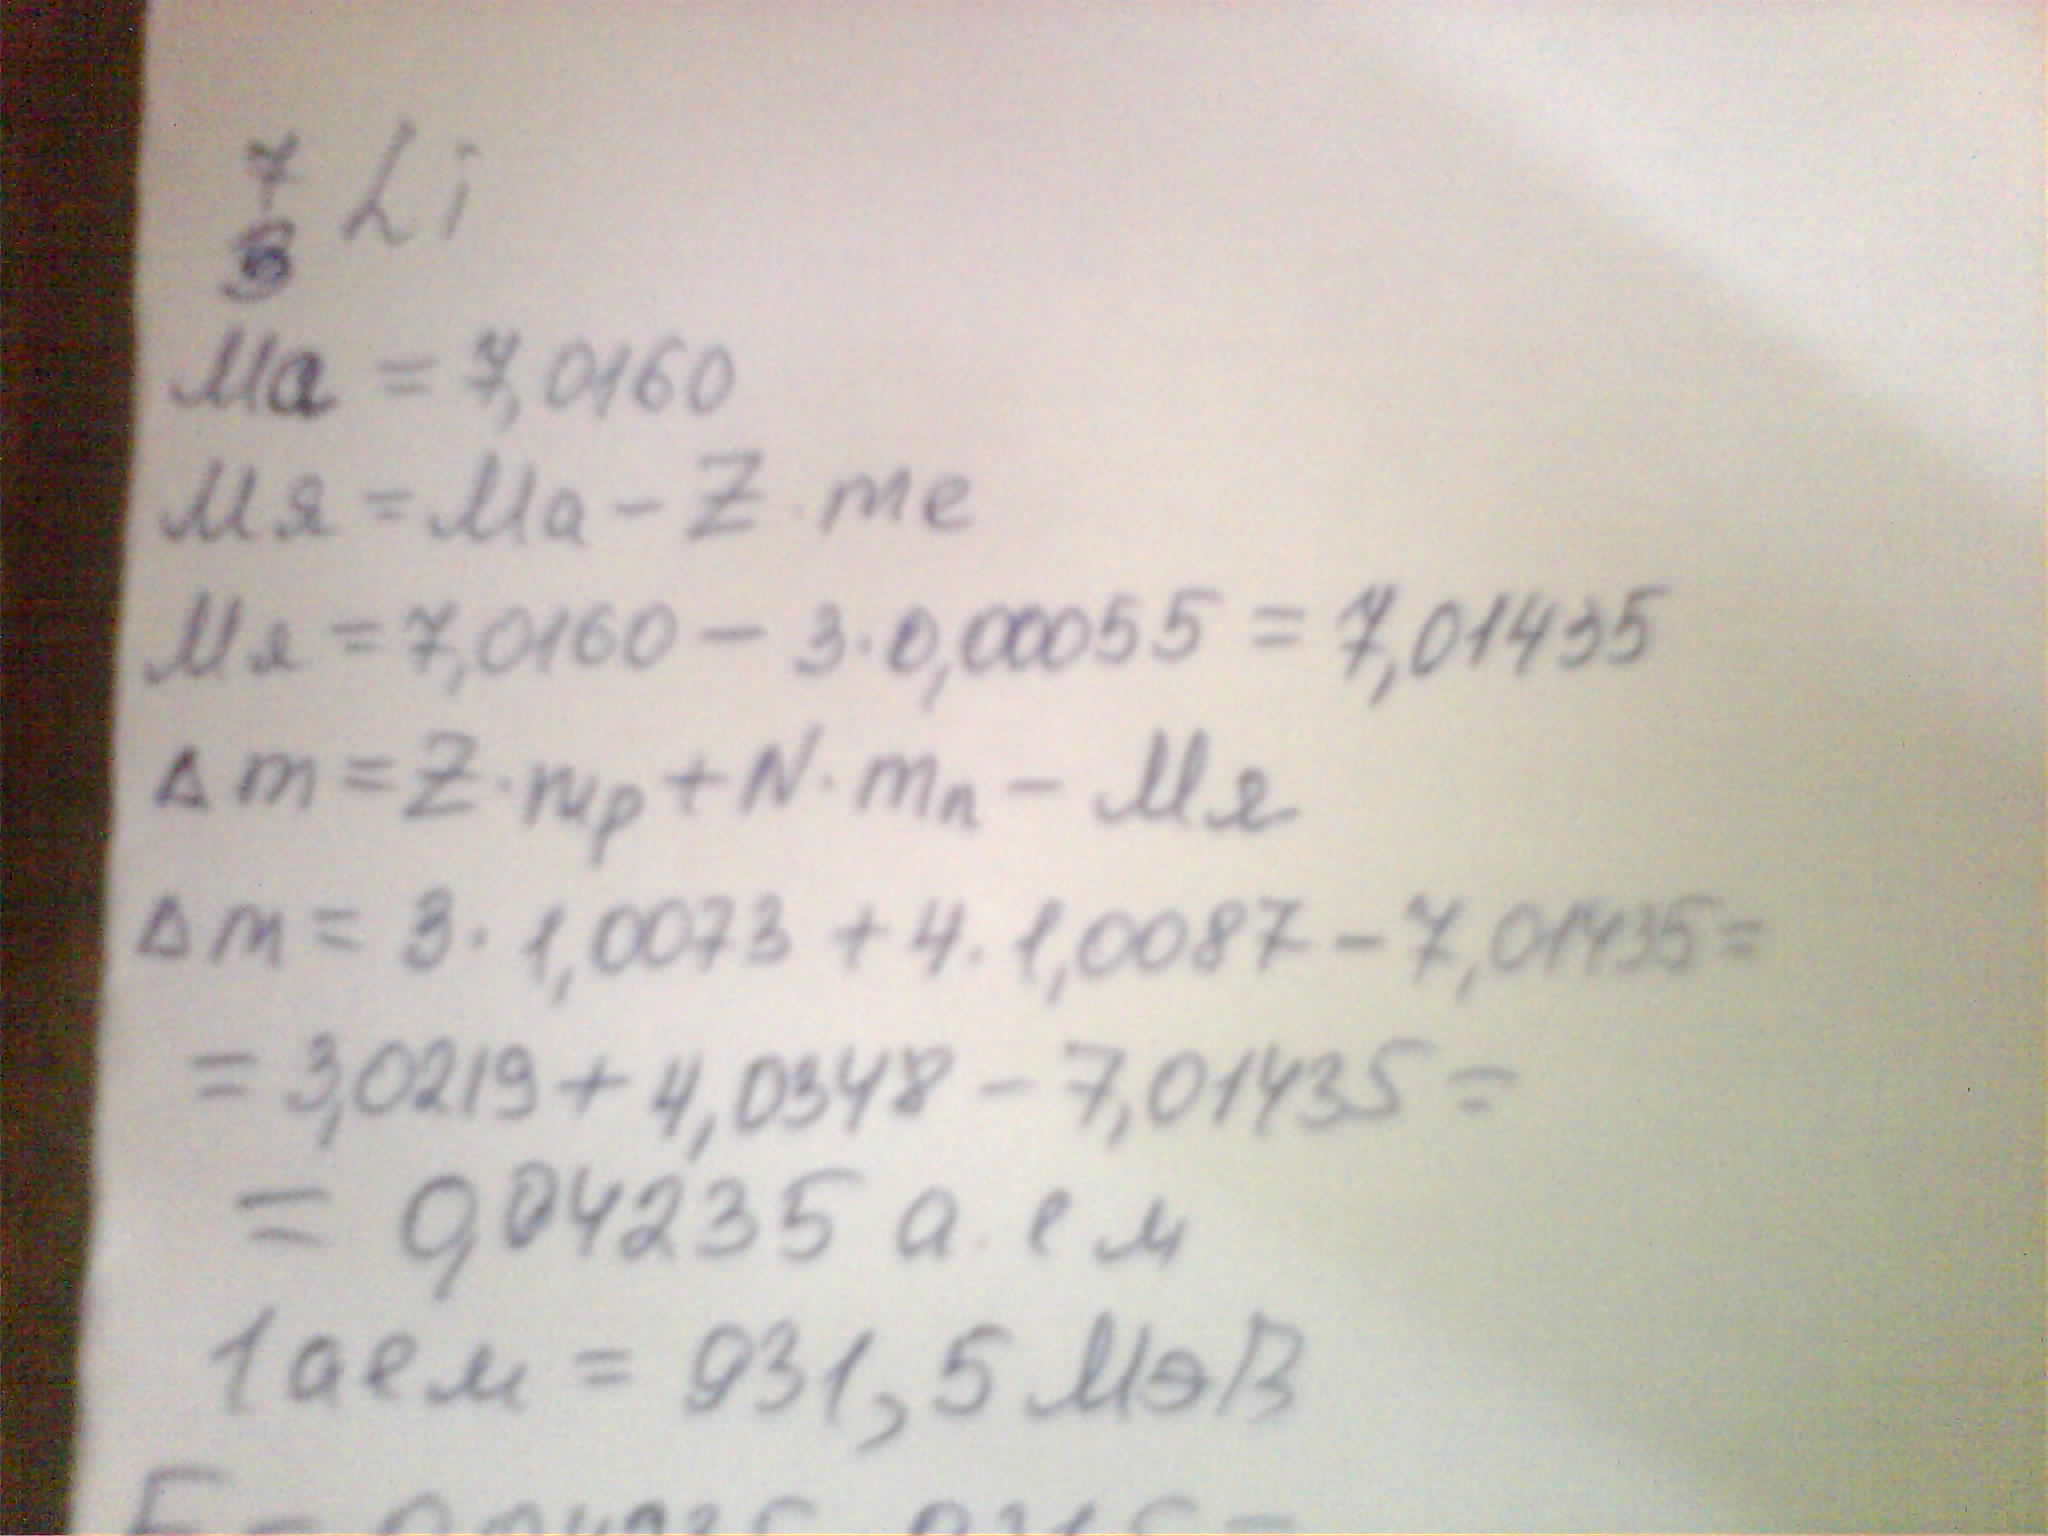 7
3 Li
Ma = 7,0160
Mя = Ma - Z · me
Mя = 7,0160 - 3 · 0,00055 = 7,01435
Δm = Z · mp + N · mn - Mя
Δm = 3 · 1,0073 + 4 · 1,0087 - 7,01435 =
= 3,0219 + 4,0348 - 7,01435 =
= 0,04235 а. е м
1 а е м = 931,5 МэВ
E = 0,04235 · 931,5 =